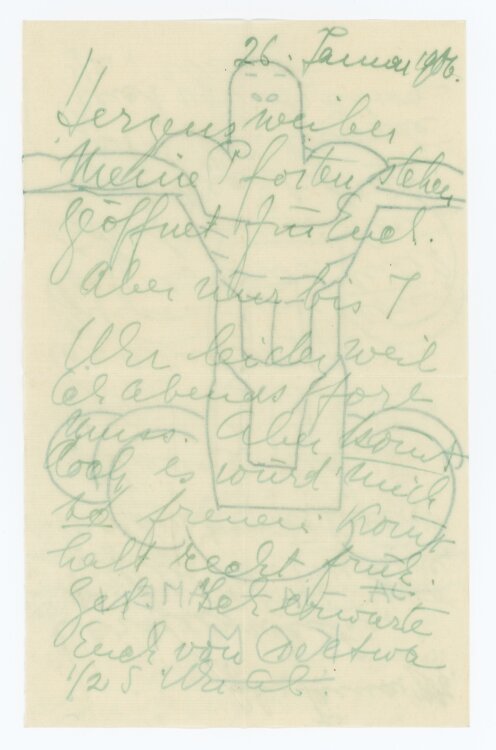 26. Januar 1906.
Herzensweiber
Meine Pforten stehen
geöffnet für Euch.
Aber nur bis 7
Uhr leider weil
ich abends fort
muss. Aber komt
doch es würd mich
so freuen komt
halt recht früh
gel. Ich erwarte
Euch von etwa
1/2 5 Uhr ab.